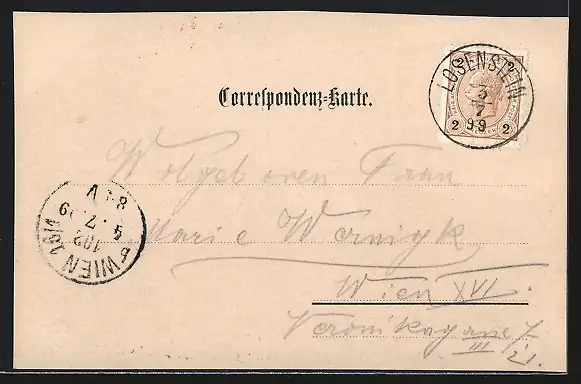 Correspondenz-Karte.
LOSENSTEIN
3
7
99
2 2
Wolgeboren Frau
Marie Wernigk
Wien XVI.
Veronikagasse 7
III/21.
WIEN 16/1
102
4. 7. 99
8 V